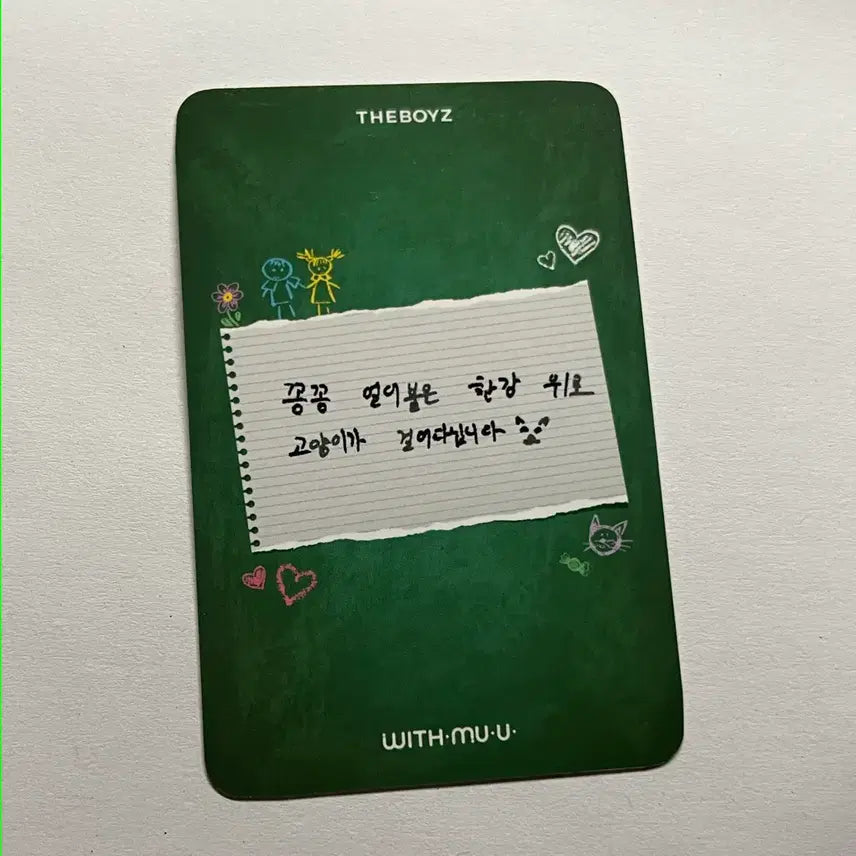 THEBOYZ
꽁꽁 얼어붙은 한강 위로
고양이가 걸어다닙니다
WITH·MU·U·